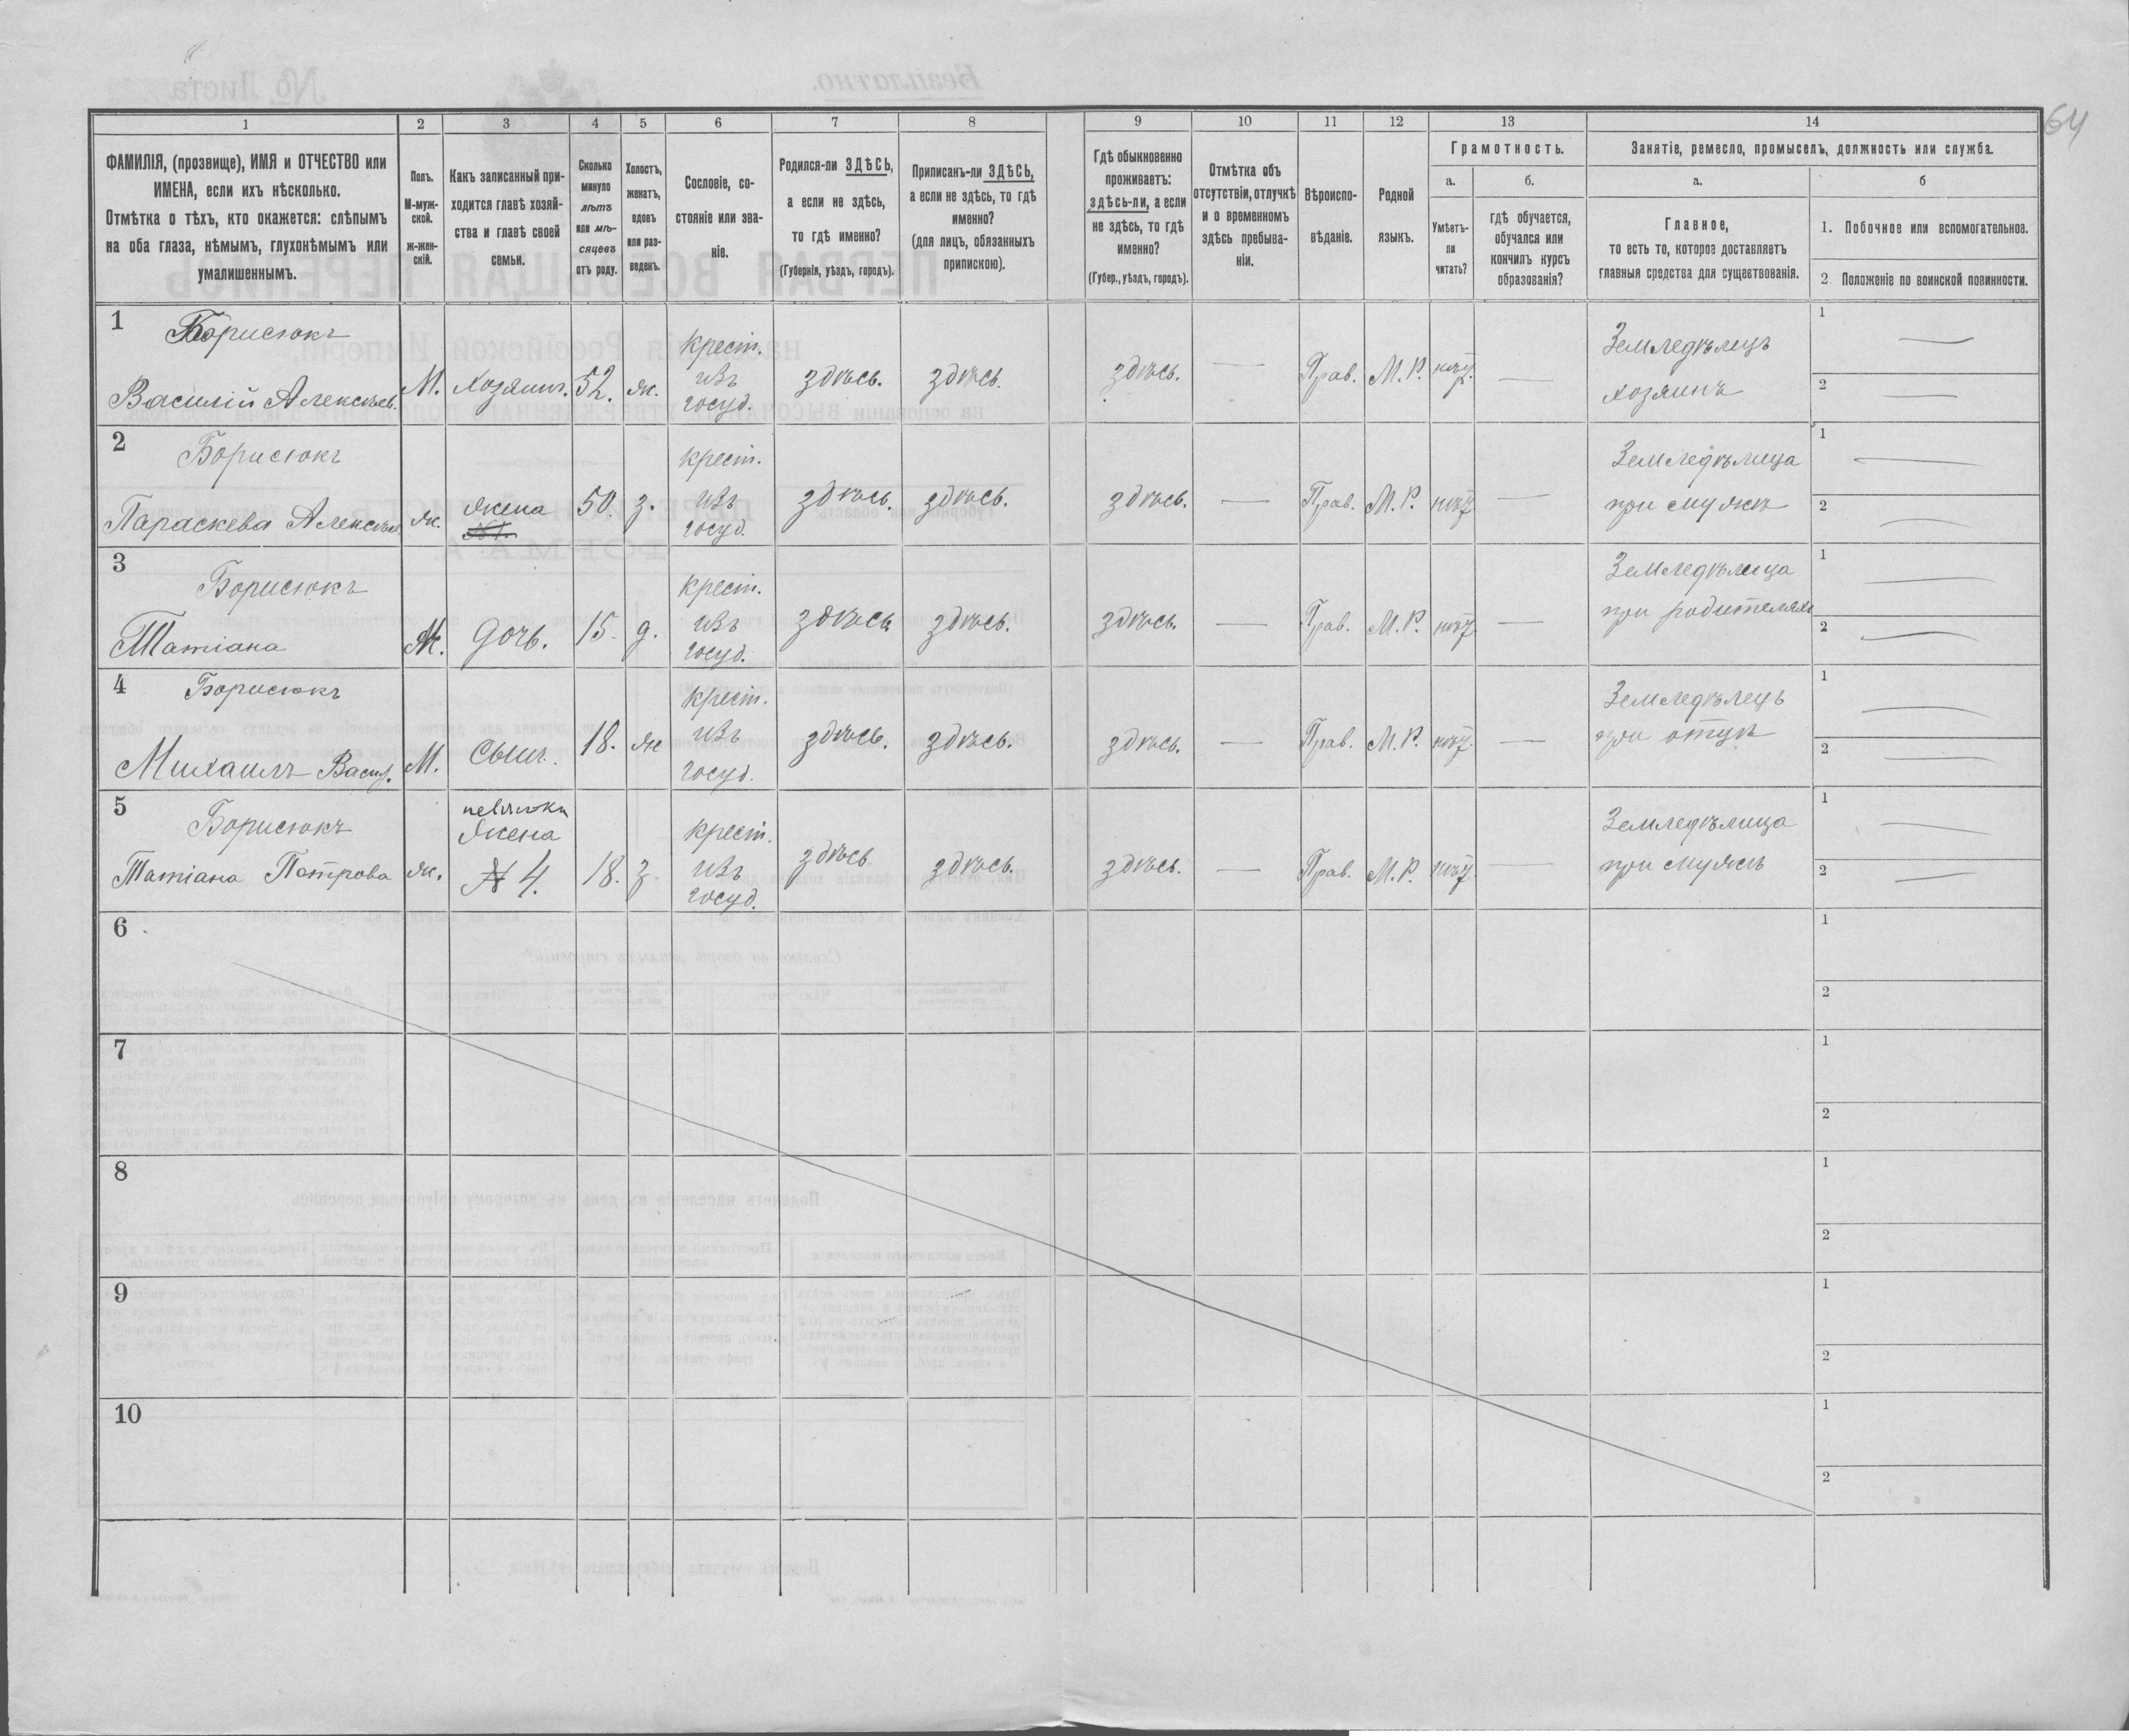 64
1 2 3 4 5 6 7 8 9 10 11 12 13 14
ФАМИЛІЯ, (прозвище), ИМЯ и ОТЧЕСТВО или
ИМЕНА, если ихъ нѣсколько.
Отмѣтка о тѣхъ, кто окажется: слѣпымъ
на оба глаза, нѣмымъ, глухонѣмымъ или
умалишеннымъ.
Полъ.
М-муж-
ской.
ж-жен-
скій.
Какъ записанный при-
ходится главѣ хозяй-
ства и главѣ своей
семьи.
Сколько
минуло
лѣтъ
или мѣ-
сяцевъ
отъ роду.
Холостъ,
женатъ,
вдовъ
или раз-
веденъ.
Сословіе, со-
стояніе или зва-
ніе.
Родился-ли ЗДѢСЬ,
а если не здѣсь,
то гдѣ именно?
(Губернія, уѣздъ, городъ).
Приписанъ-ли ЗДѢСЬ,
а если не здѣсь, то гдѣ
именно?
(для лицъ, обязанныхъ
припискою).
Гдѣ обыкновенно
проживаетъ:
здѣсь-ли, а если
не здѣсь, то гдѣ
именно?
(Губер., уѣздъ, городъ).
Отмѣтка объ
отсутствіи, отлучкѣ
и о временномъ
здѣсь пребыва-
ніи.
Вѣроиспо-
вѣданіе.
Родной
языкъ.
Грамотность.
а.
Умѣетъ-
ли
читать?
б.
гдѣ обучается,
обучался или
кончилъ курсъ
образованія?
Занятіе, ремесло, промыселъ, должность или служба.
а.
Главное,
то есть то, которое доставляетъ
главныя средства для существованія.
б
1. Побочное или вспомогательное.
2 Положеніе по воинской повинности.
1
Борисюкъ
Василій Алексѣев.
М.
Хозяинъ.
52.
ж.
крест.
изъ
госуд.
здѣсь.
здѣсь.
здѣсь.
—
Прав.
М.Р.
нѣт
—
Земледѣлецъ
хозяинъ
1 —
2 —
2
Борисюкъ
Параскева Алексѣев
ж.
жена
50.
з.
крест.
изъ
госуд.
здѣсь.
здѣсь.
здѣсь.
—
Прав.
М.Р.
нѣт
—
Земледѣлица
при мужѣ
1 —
2 —
3
Борисюкъ
Татіана
ж.
дочь.
15.
д.
крест.
изъ
госуд.
здѣсь
здѣсь.
здѣсь.
—
Прав.
М.Р.
нѣт
—
Земледѣлица
при родителяхъ
1 —
2 —
4
Борисюкъ
Михаилъ Васил.
М.
Сынъ.
18.
ж
крест.
изъ
госуд.
здѣсь.
здѣсь.
здѣсь.
—
Прав.
М.Р.
нѣт
—
Земледѣлецъ
при отцѣ
1 —
2 —
5
Борисюкъ
Татіана Петрова
ж.
невѣстка
жена
№ 4.
18.
з.
крест.
изъ
госуд.
здѣсь
здѣсь.
здѣсь.
—
Прав.
М.Р.
нѣт
—
Земледѣлица
при мужѣ
1 —
2 —
6
1
2
7
1
2
8
1
2
9
1
2
10
1
2